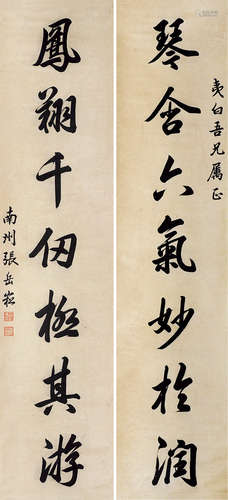 琴含六氣妙於润
夷白吾兄属正
鳳翔千仞極其游
南州張岳崧